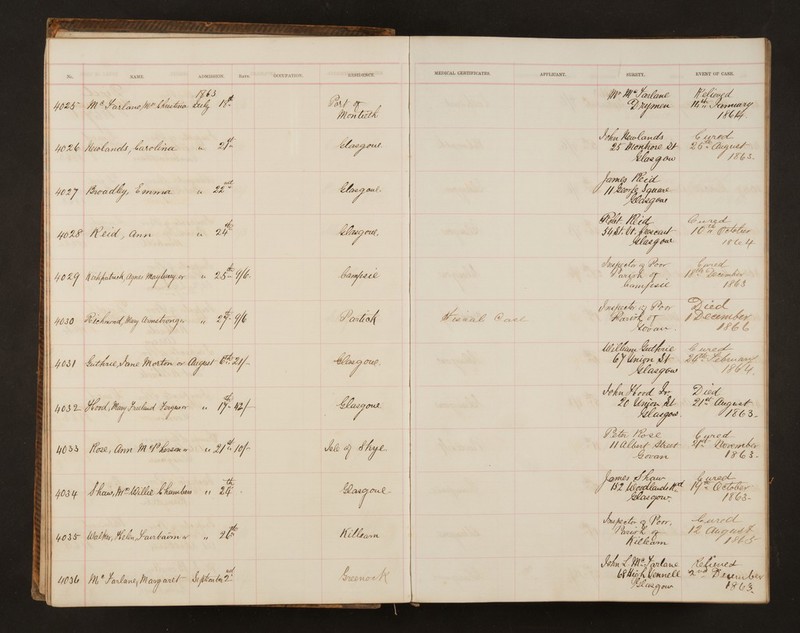 No. NAME. ADMISSION. Rate OCCUPATION. RESIDENCE. MEDICAL CERTIFICATES. APPLICANT. SURETY. EVENT OF CASE.
1863
4025 McFarlane, Mrs Christina July 18th Port of Monteith Mr McFarlane Drymen Relieved 16th January 1864
4026 Newlands, Carolina " 21st Glasgow John Newlands 25 St Glasgow Cured 25th August 1863
4027 Broadly, Emma " 22nd Glasgow James Reid 11 George Square Glasgow
4028 Reid, Ann " 24th Glasgow Robt. Reid 54 St. Glasgow Cured 10th October 1864
4029 Kirkpatrick, Agnes or " 25th 9/6 Campsie Inspector of Poor Parish of Campsie Cured 18th December 1863
4030 Richmond, Mary Armstrong or " 27th 9/6 Partick Case Inspector of Poor Parish of Govan Died 1 December 1866
4031 Guthrie, Jane Morton or August 6th 21/- Glasgow William Guthrie 67 Union St Glasgow Cured 26th February 1864
4032 Hood, May Ireland Ferguson " 17th 42/- Glasgow John Hood Jr. 20 Union St Glasgow Died 21st August 1863
4033 Rose, Ann McPherson or " 21st 10/- Isle of Skye Peter Rose 11 Albert Street Govan Cured December 1863
4034 Shaw, Mrs Willie Chambers " 24th Glasgow James Shaw 152 Woodlands Rd Glasgow Cured 19th October 1863
4035 Walker, Helen Fairbairn or " 26th Killearn Inspector of Poor Parish of Killearn Cured 12 August 1865
4036 McFarlane, Margaret September 2nd Greenock John L McFarlane 68 High Glasgow Relieved 2nd December 1863